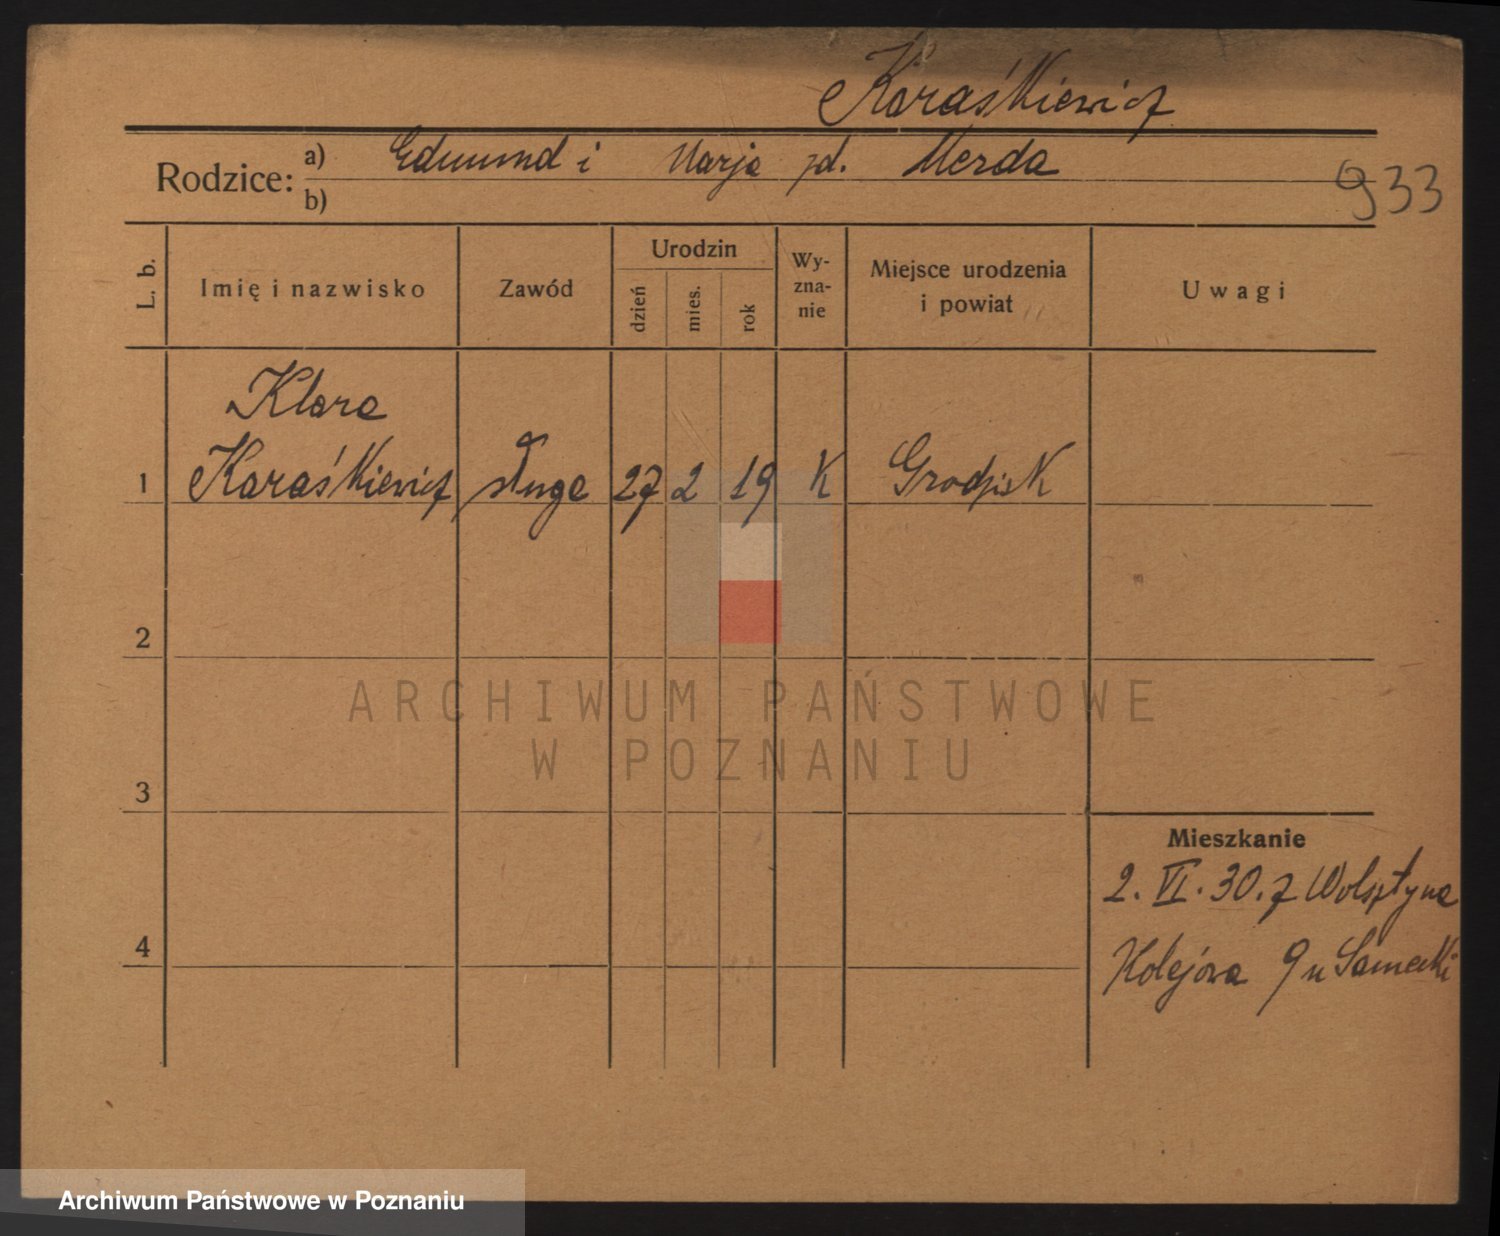 Karaśkiewicz
Rodzice: a) Edmund i Marja zd. Merda
b)
933
L. b.
Imię i nazwisko
Zawód
Urodzin
dzień
mies.
rok
Wy-
zna-
nie
Miejsce urodzenia
i powiat
Uwagi
Klara
1 Karaśkiewicz służąca 27 2 19 K Grodzisk
2
3
4
Mieszkanie
2. VI. 30. z Wolsztyna
Kolejowa 9 u Sameckі
ARCHIWUM PAŃSTWOWE
W POZNANIU
Archiwum Państwowe w Poznaniu